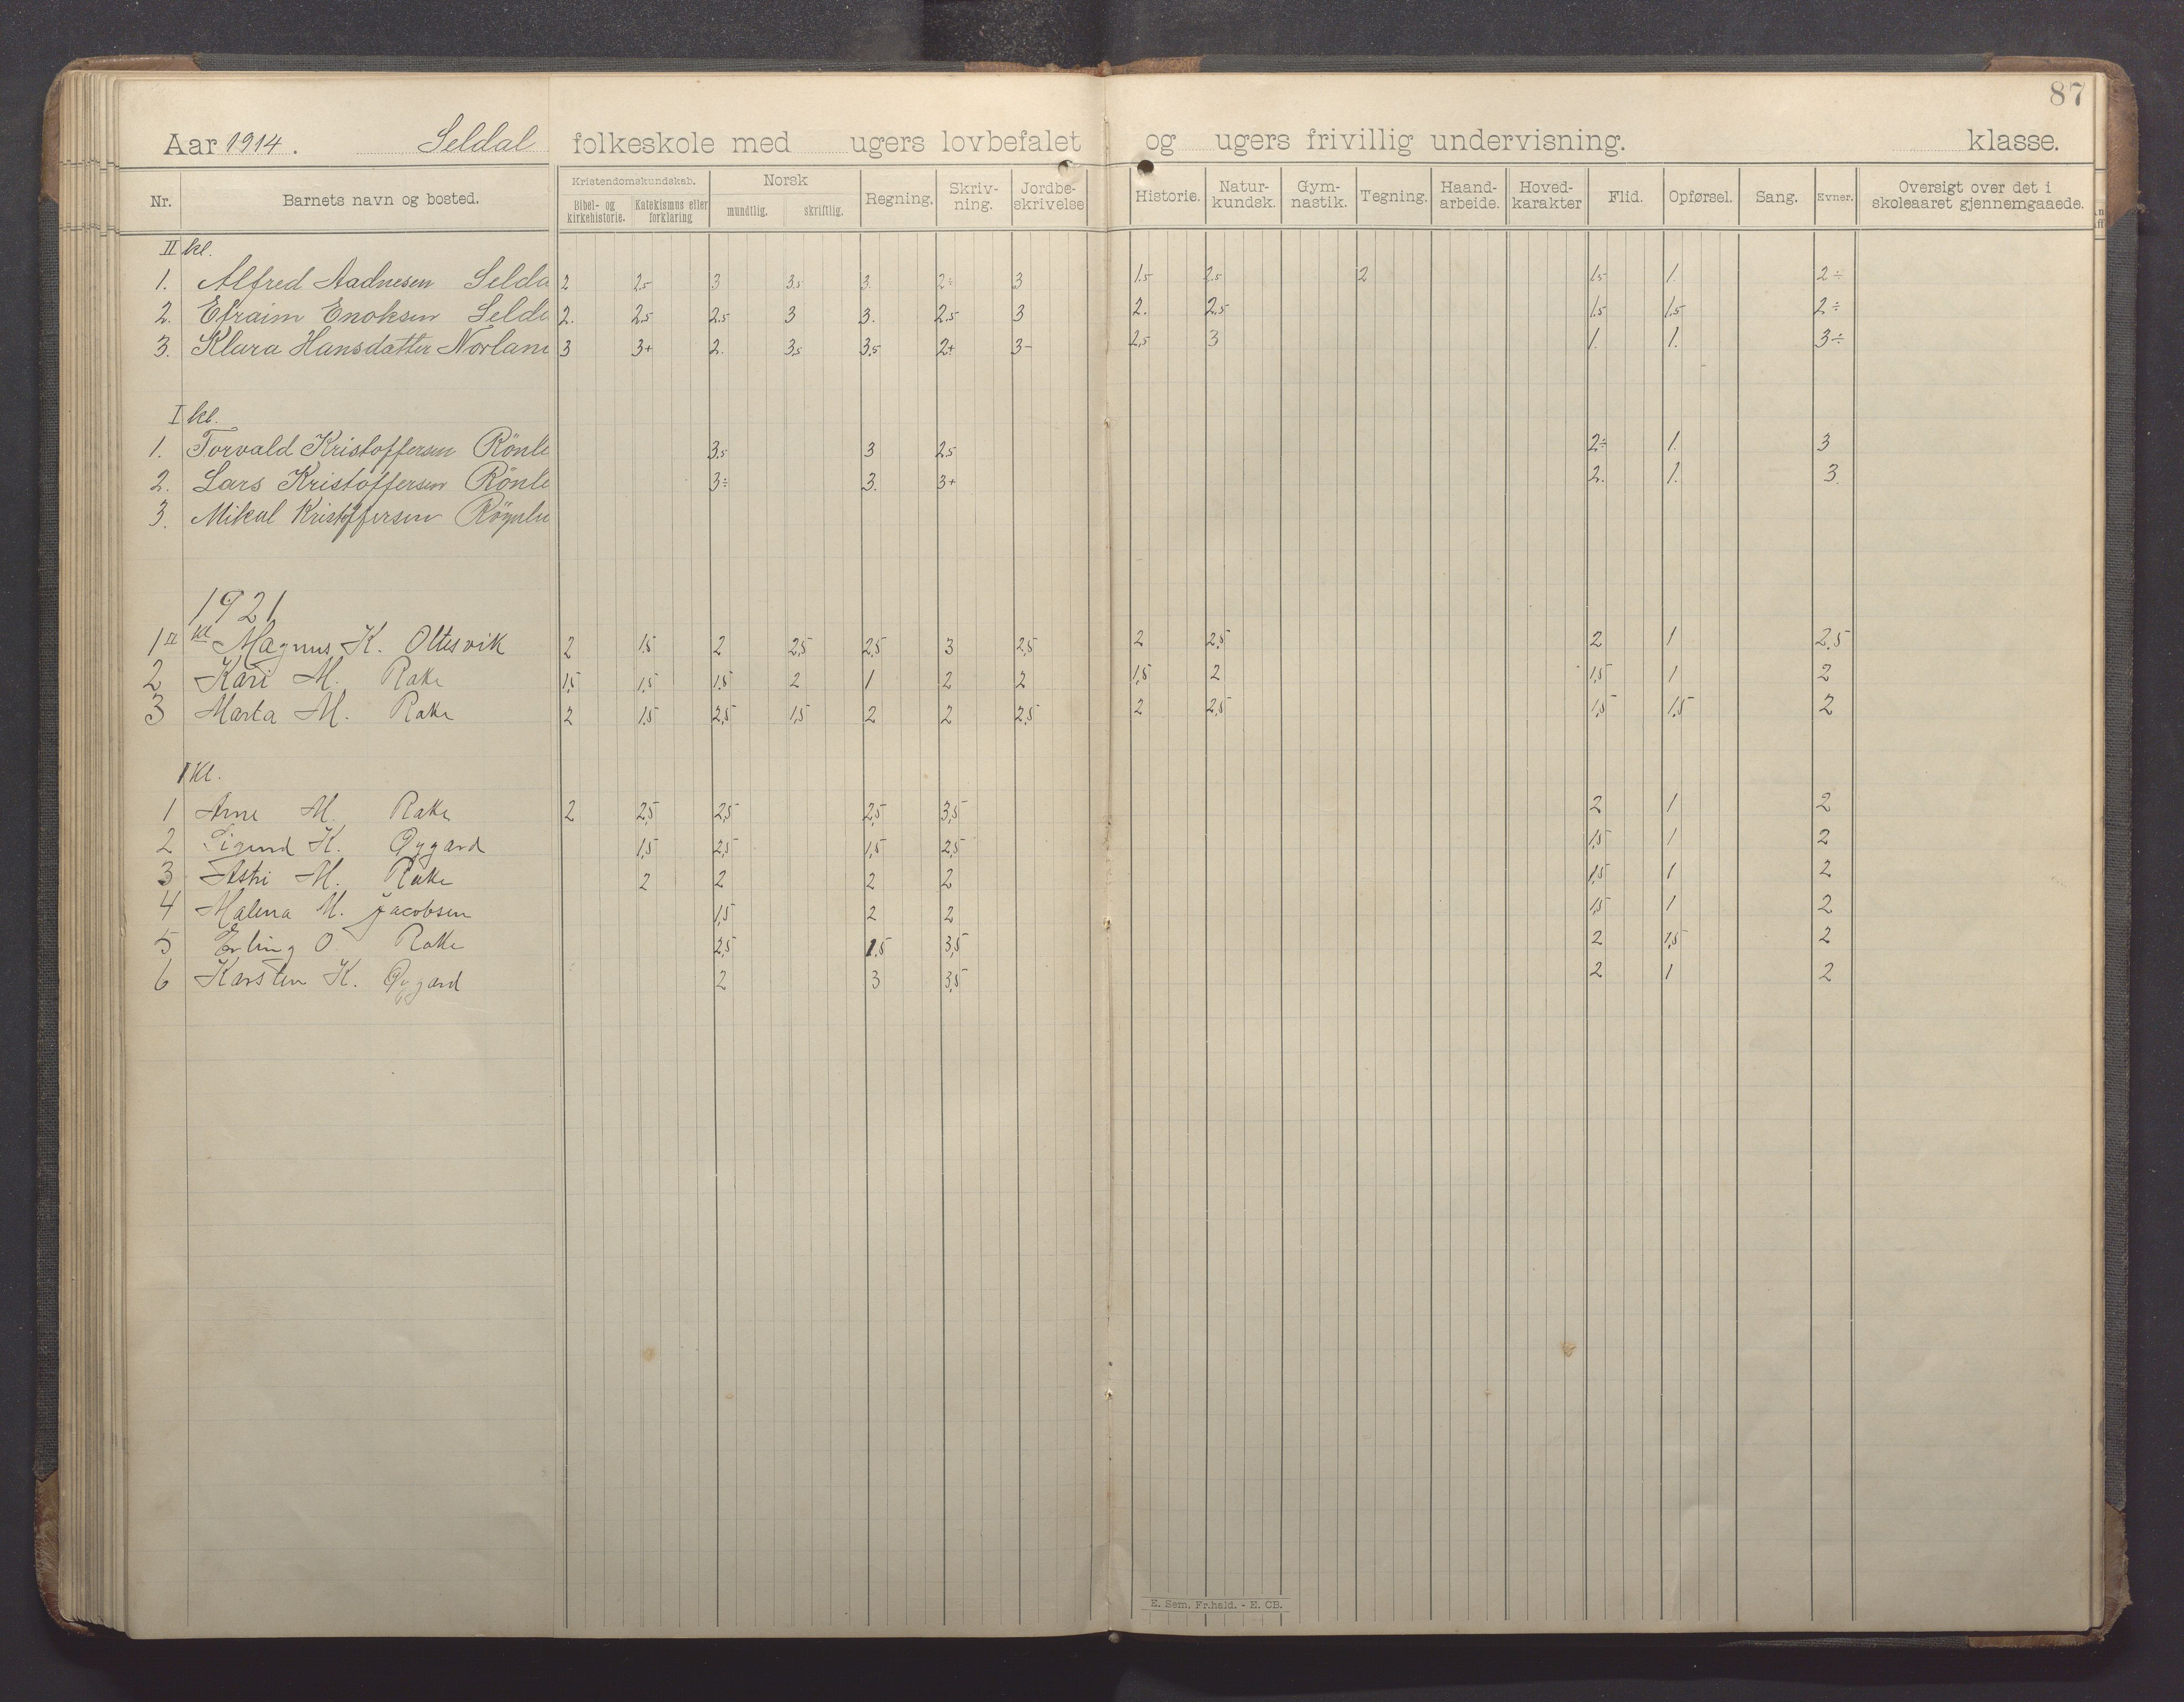 87
Aar 1914. Seldal folkeskole med ugers lovbefalet og ugers frivillig undervisning. klasse.
Nr. Barnets navn og bosted. Kristendomskundskab. Bibel- og kirkehistorie. Katekismus eller forklaring Norsk mundtlig. skriftlig. Regning. Skriv-ning. Jordbe-skrivelse Historie. Natur-kundsk. Gym-nastik. Tegning. Haand-arbeide. Hoved-karakter Flid. Opførsel. Sang. Evner. Oversigt over det i skoleaaret gjennemgaaede.
II kl.
1. Alfred Aadnesen Selda 2 2,5 3 3,5 3. 2÷ 3 1,5 2,5 2 1,5 1. 2÷
2. Efraim Enoksen Selda 2. 2,5 2,5 3 3. 2,5 3 2. 2,5 1,5 1,5 2÷
3. Klara Hansdatter Norlan 3 3+ 2. 3,5 3,5 2+ 3- 2,5 3 1. 1. 3÷
I kl.
1. Torvald Kristoffersen Rönle 3,5 3 2,5 2÷ 1. 3
2. Lars Kristoffersen Rönle 3÷ 3. 3+ 2. 1. 3.
3. Mikal Kristoffersen
1921
1 II kl Magnus K. Oltesvik 2 1,5 2 2,5 2,5 3 2,5 2 2,5 2 1 2,5
2 Kari M. Rake 1,5 1,5 1,5 2 1 2 2 1,5 2 1,5 1 2
3 Marta M. Rake 2 1,5 2,5 1,5 2 2 2,5 2 2,5 1,5 1,5 2
I Kl.
1 Arne M. Rake 2 2,5 2,5 2,5 3,5 2 1 2
2 Sigurd K. Øygard 1,5 2,5 1,5 2,5 1,5 1 2
3 Astri M. Rake 2 2 2 2 1,5 1 2
4 Malena M. Jacobsen 1,5 2 2 1,5 1 2
5 Erling O. Rake 2,5 1,5 3,5 2 1,5 2
6 Karsten K. Øygard 2 3 3,5 2 1 2
E. Sem, Fr.hald. - E. CB.